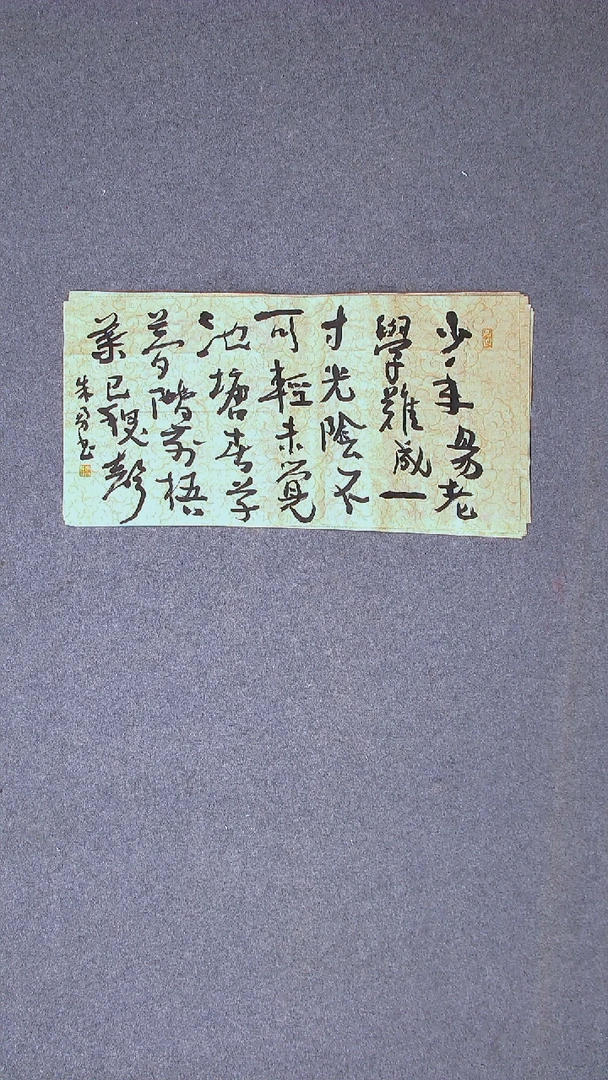 少年易老
學難成一
寸光陰不
可輕未覺
池塘春草
夢階前梧
葉已秋聲
朱书